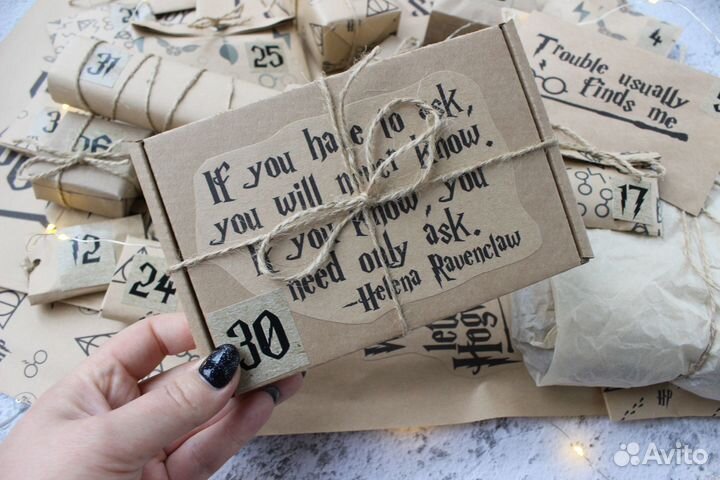 31
25
4
Trouble usually
finds me
3
26
If you have to ask,
you will never know.
If you know, you
need only ask.
-Helena Ravenclaw
17
12
24
30
HP
HP
Avito